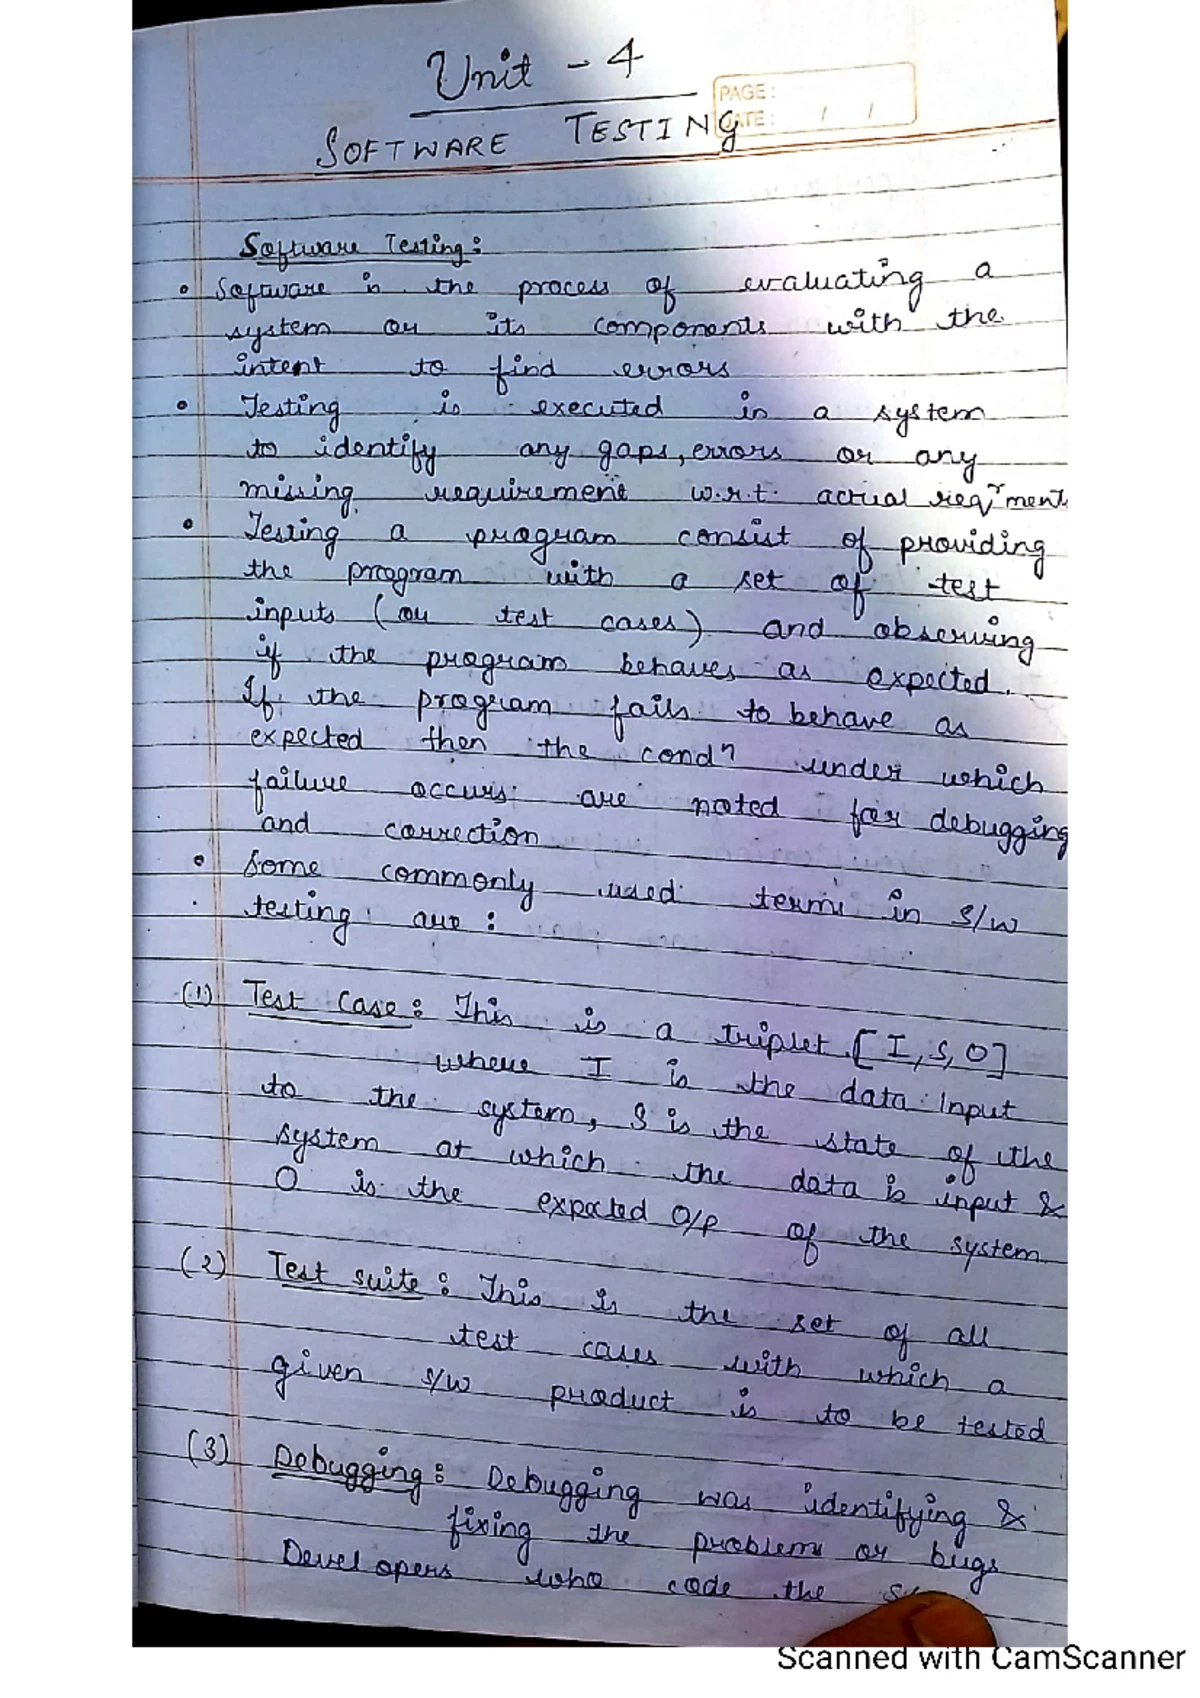 Unit - 4
PAGE:
DATE: / /
SOFTWARE TESTING
Software Testing:
• Software is the process of evaluating a
system or its components with the
intent to find errors
• Testing is executed in a system
to identify any gaps, errors or any
missing requirement w.r.t. actual reqʳment
• Testing a program consist of providing
the program with a set of test
inputs (or test cases) and observing
if the program behaves as expected.
If the program fails to behave as
expected then the condⁿ under which
failure occurs are noted for debugging
and correction
• Some commonly used terms in S/W
testing are:
(1) Test Case: This is a triplet [I, S, O]
where I is the data input
to the system, S is the state of the
system at which the data is input &
O is the expected O/P of the system
(2) Test suite: This is the set of all
test cases with which a
given S/W product is to be tested
(3) Debugging: Debugging was identifying &
fixing the problems or bugs
Developers who code the
Scanned with CamScanner